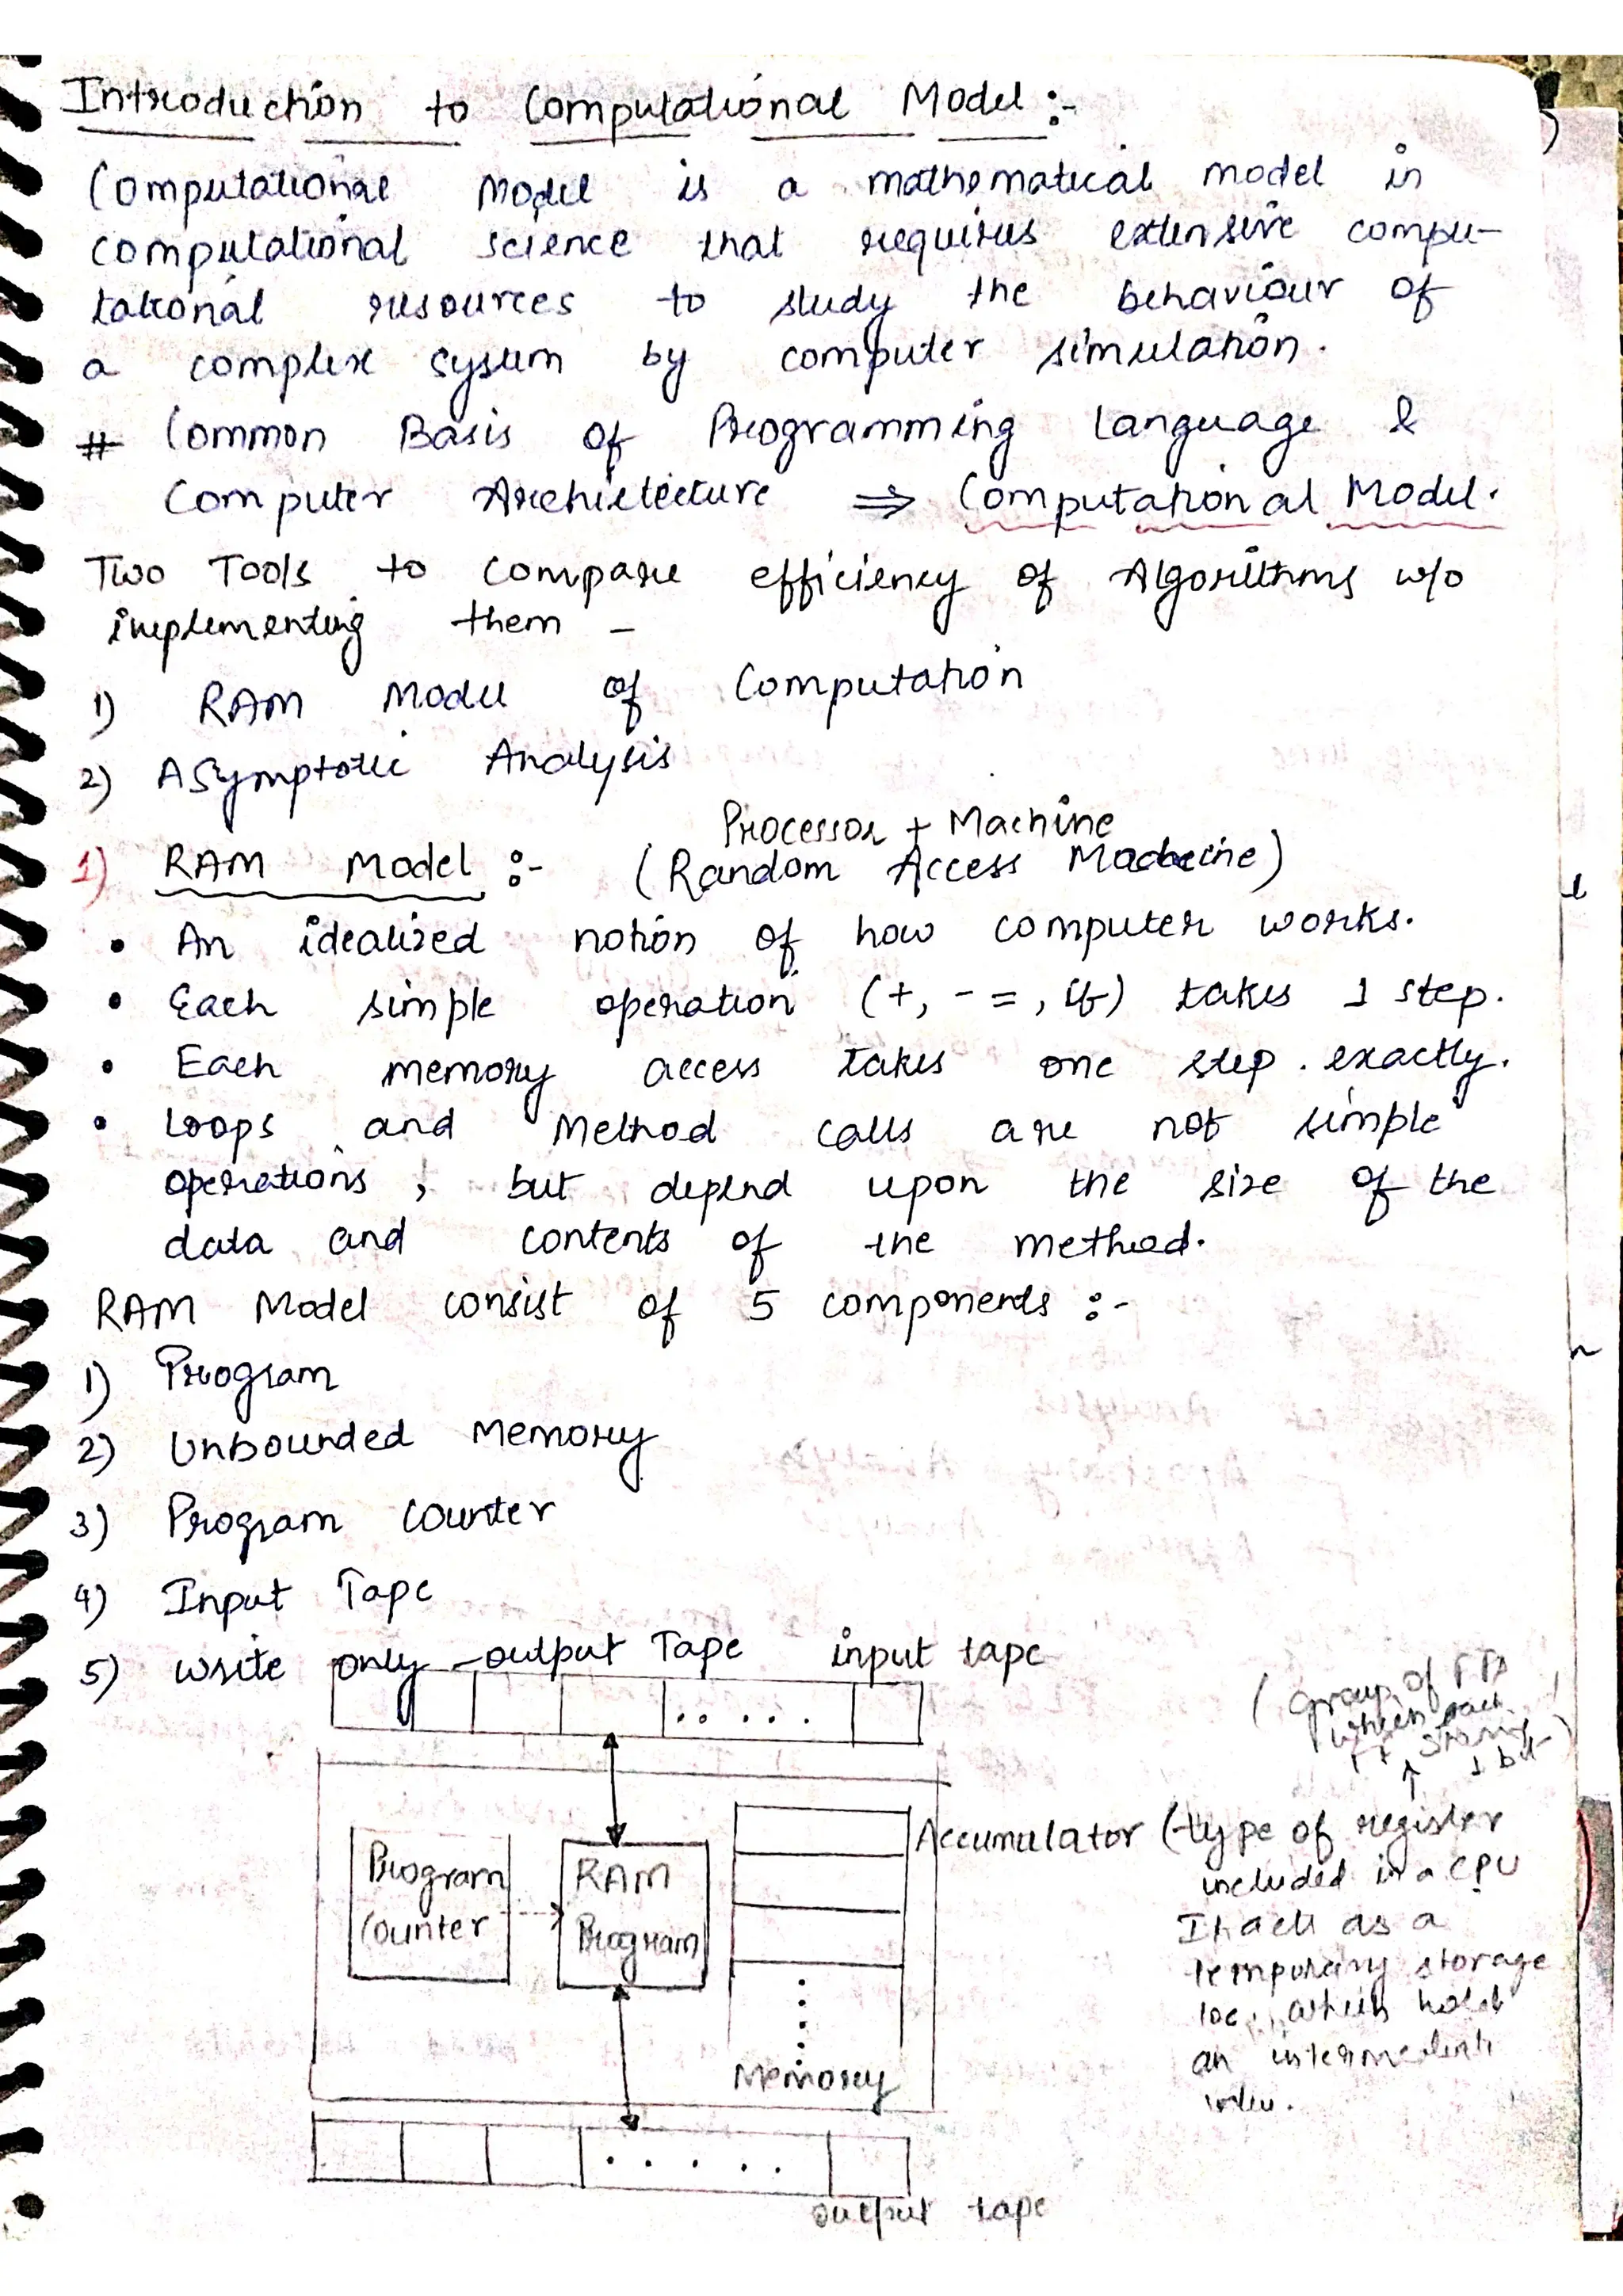 Introduction to Computational Model :-
Computational Model is a mathematical model in
computational science that requires extensive compu-
tational resources to study the behaviour of
a complex sysem by computer simulation.
# Common Basis of Programming Language &
Computer Architecture ⇒ Computational Model.
Two Tools to compare efficiency of Algorithms w/o
implementing them -
1) RAM Model of Computation
2) ASymptotic Analysis
Processor + Machine
1) RAM Model :- (Random Access Machine)
• An idealized notion of how computer works.
• Each simple operation (+, - = , if) takes 1 step.
• Each memory access takes one step . exactly.
• Loops and Method calls are not simple
operations , but depend upon the size of the
data and contents of the method.
RAM Model consist of 5 components :-
1) Program
2) Unbounded Memory
3) Program Counter
4) Input Tape
5) write only -output Tape
input tape
(group of
which each
storing
1 bit)
Program
Counter
RAM
Program
Memory
Accumulator (type of register
included in a CPU
It acts as a
temporary storage
loc. which holds
an intermediate
output tape